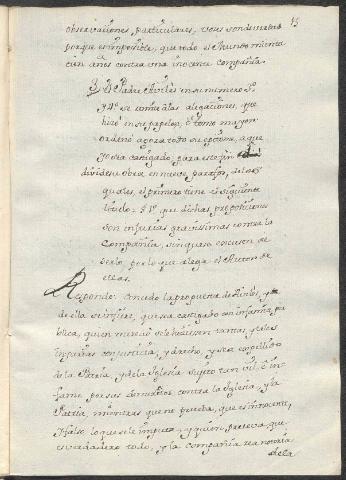 15
observaciones particulares, veréis sondemuchos
porque es imposible, que todo el Mundo mienta
cien años contra una inocente Compañía.
El Padre Avilés en su numero 5º
se contra las alegaciones, que
hizé en su papelon, ó tomo mayor
ordeno agora todo su opusculo, a que
yo sea castigado, para este fin
divide su obra en nueve parrafos, de los
quales, el primero tiene el siguiente
titulo: § 1º que dichas proposiciones
son injurias gravisimas contra la
Compañia, sin que se escusen de
serlo, por lo que alega el Autor de
ellas.
Respondo: concedo la propuesta de Avilés, y
de ella se infiere, que sea castigado con infamia pu
blica, quien mereció se le hiciesen tantas, y tales
injurias con justicia, y derecho, y sea expelido
de la Patria, y de la Iglesia sujeto tan vil, é in
fame por sus demeritos contra la Iglesia, y la
Patria, mientras que no prueba, que es inocente,
y falso lo que se le imputa, y quien prueva, que
es verdadero todo, y la Compañia rea notoria
de la